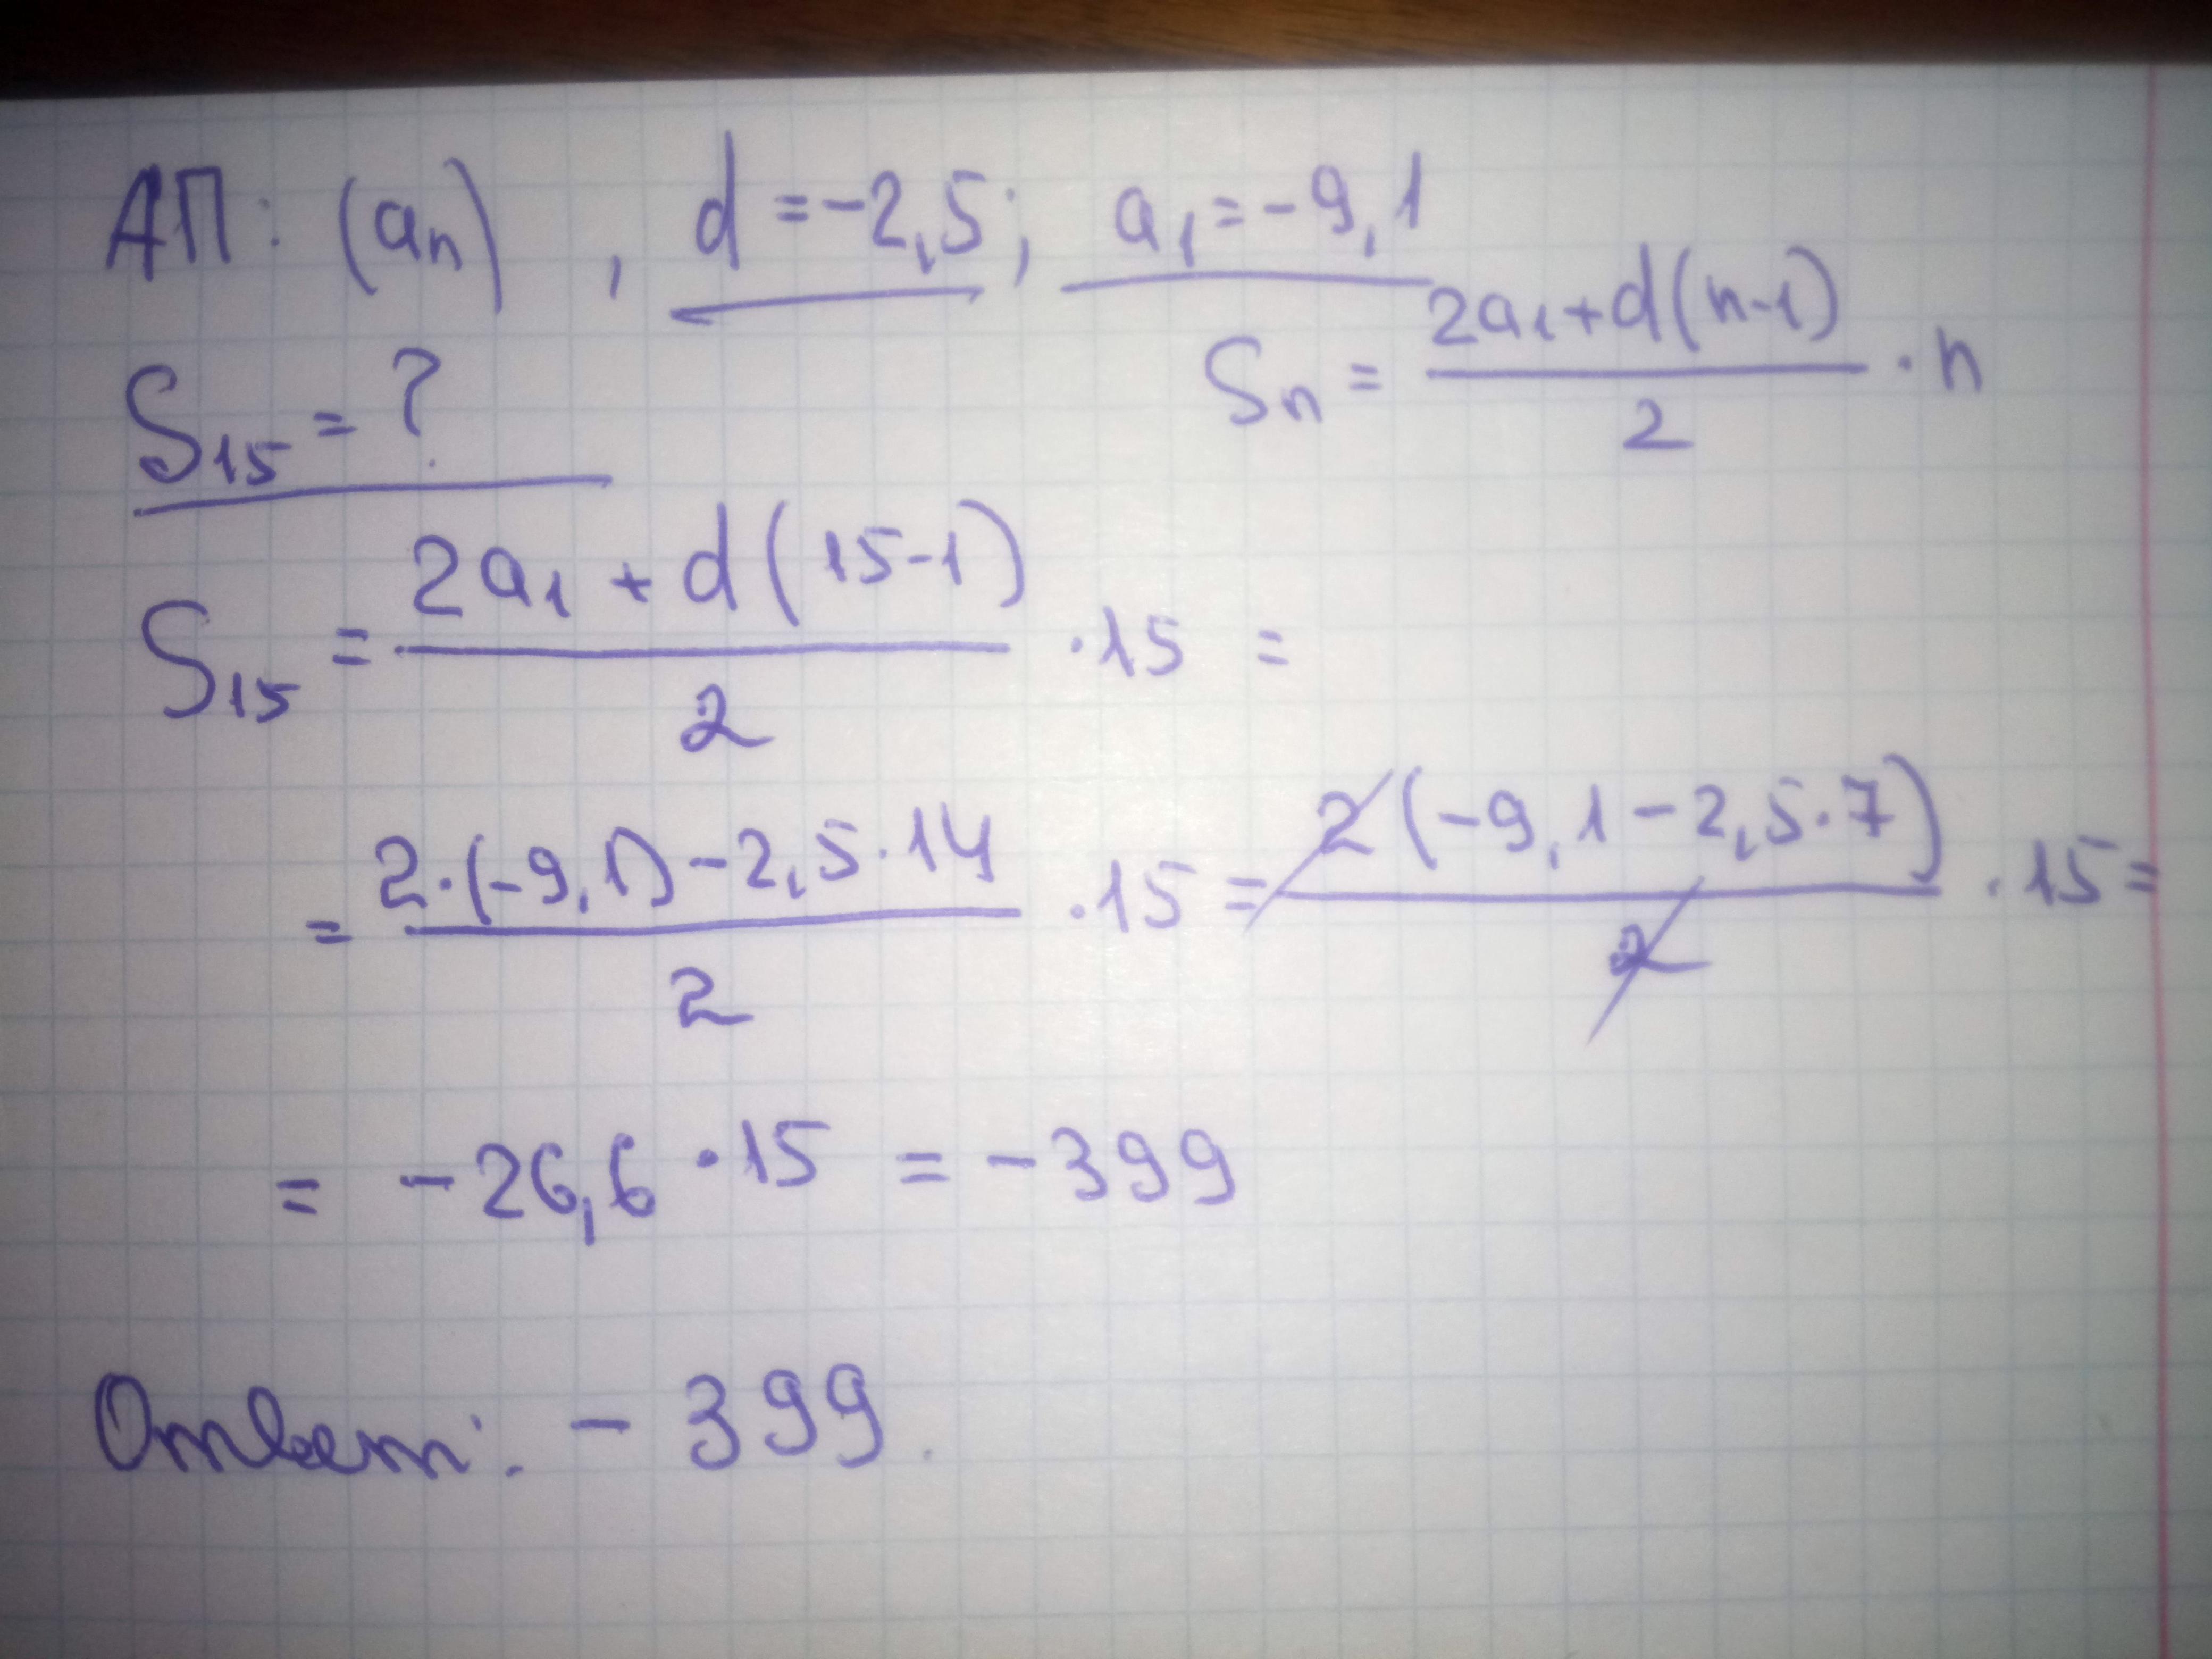 АП: (aₙ) , d = -2,5; a₁ = -9,1
S₁₅ = ? Sₙ = (2a₁+d(n-1))/2 · n
S₁₅ = (2a₁ + d(15-1))/2 · 15 =
= (2·(-9,1) - 2,5·14)/2 · 15 = (2(-9,1-2,5·7))/2 · 15 =
= -26,6 · 15 = -399
Ответ: -399.